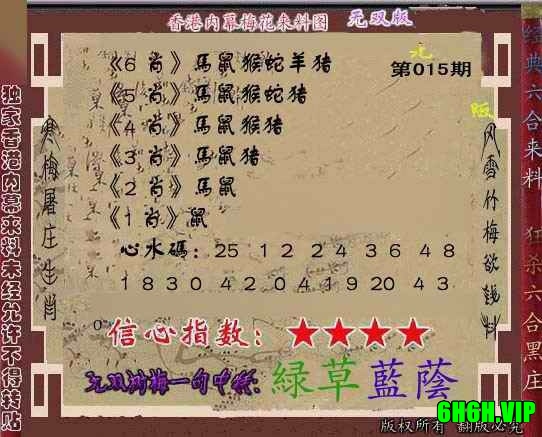 香港内幕梅花来料图 无双版
《6 肖》馬鼠猴蛇羊猪
第015期
《5 肖》馬鼠猴蛇猪
《4 肖》馬鼠猴猪
《3 肖》馬鼠猪
《2 肖》馬鼠
《1 肖》鼠
心水碼：25 12 24 36 48
18 30 42 04 19 20 43
信心指数：★★★★
无双
版
一句中特：綠草藍蔭
独家香港内幕来料未经允许不得转贴
寒梅屠庄生肖
风雪竹梅欲钱料
经典六合来料 狂杀六合黑庄
6H6H.VIP
版权所有 翻版必究